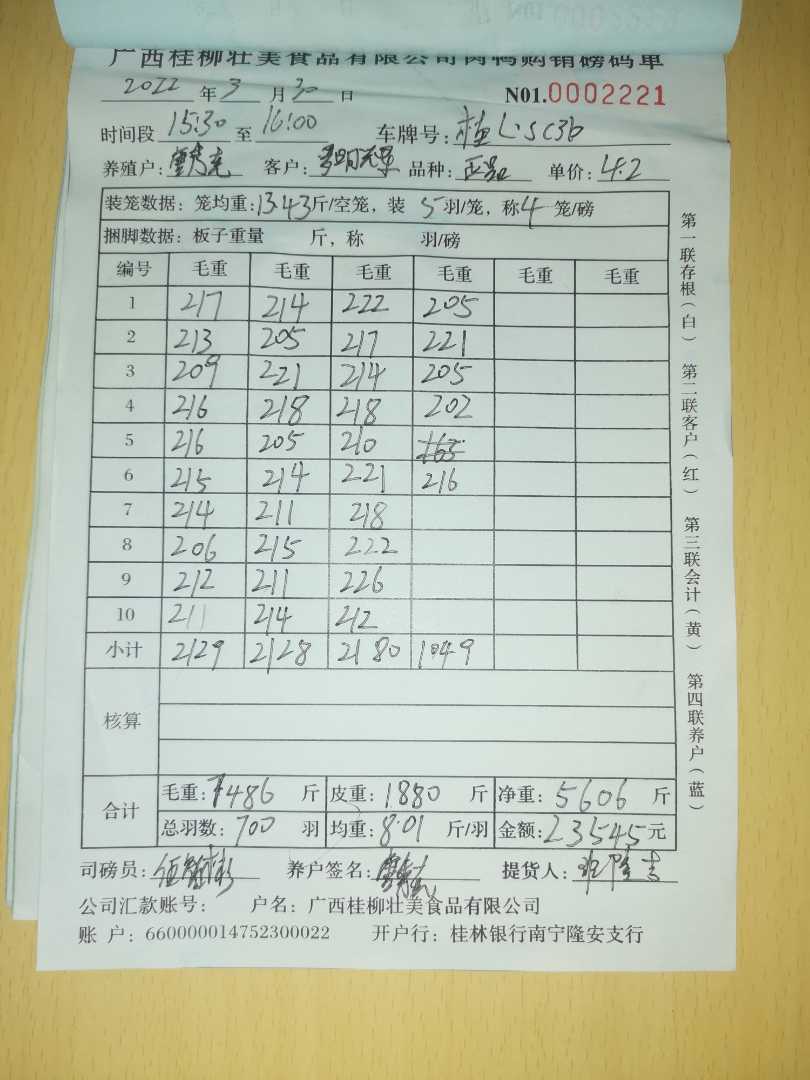 广西桂柳壮美食品有限公司肉鸭购销磅码单
2022 年 3 月 30 日 N01.0002221
时间段 15:30 至 16:00 车牌号: 桂L·SC36
养殖户: 客户: 品种: 单价: 4.2
装笼数据: 笼均重:13.43斤/空笼, 装 5 羽/笼, 称4 笼/磅
捆脚数据: 板子重量 斤, 称 羽/磅
编号 毛重 毛重 毛重 毛重 毛重 毛重
1 217 214 222 205
2 213 205 217 221
3 209 221 214 205
4 216 218 218 202
5 216 205 210
6 215 214 221 216
7 214 211 218
8 206 215 222
9 212 211 226
10 211 214 212
小计 2129 2128 2180 1049
核算
合计
毛重: 7486 斤 皮重: 1880 斤 净重: 5606 斤
总羽数: 700 羽 均重: 8.01 斤/羽 金额: 23545 元
司磅员: 养户签名: 提货人:
公司汇款账号: 户名: 广西桂柳壮美食品有限公司
账 户: 660000014752300022 开户行: 桂林银行南宁隆安支行
第一联存根(白) 第二联客户(红) 第三联会计(黄) 第四联养户(蓝)